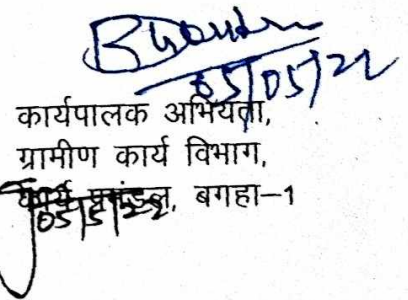 05/05/22
कार्यपालक अभियंता,
ग्रामीण कार्य विभाग,
कार्य प्रमंडल, बगहा-1
05/5/22